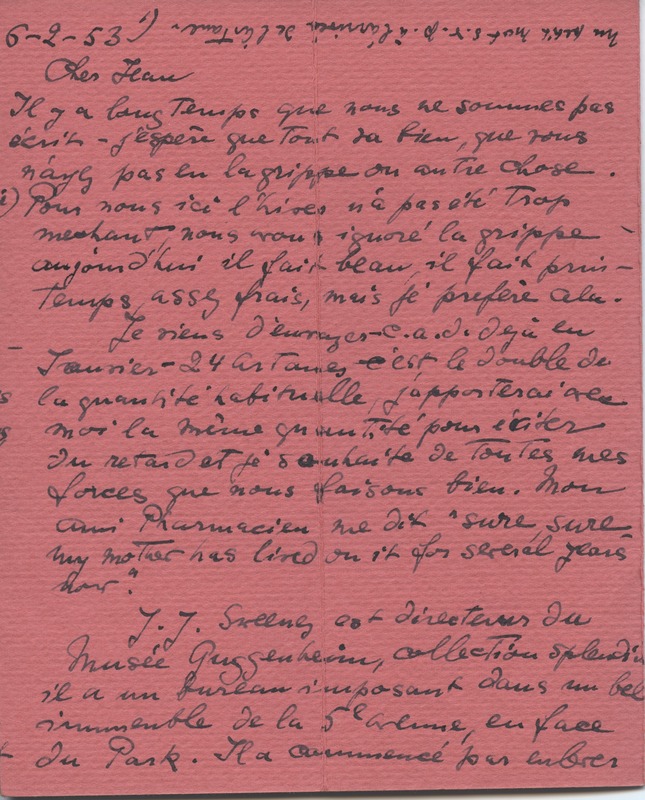 6-2-53 (
un petit mot s.v.p. à l'arrivée de l'Artane.
Cher Jean
Il y a longtemps que nous ne sommes pas
écrit - j'espère que tout va bien, que vous
n'ayez pas eu la grippe ou autre chose.
Pour nous ici l'hiver n'a pas été trop
mechant, nous avons ignoré la grippe -
aujourd'hui il fait beau, il fait prin-
temps, assez frais, mais je prefère cela.
Je viens d'envoyer - c.a.d. dejà en
Janvier - 24 Artanes c'est le double de
la quantité habituelle, j'apporterai avec
moi la même quantité pour éviter
du retard et je souhaite de toutes mes
forces que nous faisons bien. Mon
ami Pharmacien me dit "sure, sure
my mother has lived on it for several years
now."
J. J. Sweeney est directeur du
Musée Guggenheim, collection splendi
il a un bureau imposant dans un bel
immeuble de la 5e avenue, en face
du Park. Il a commencé par enlever